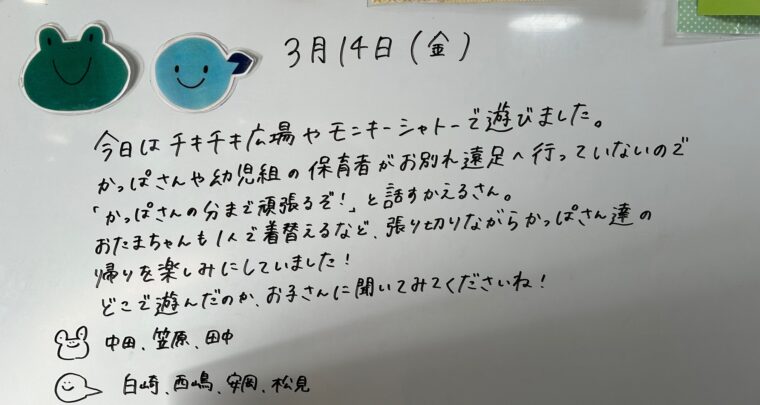 3月14日(金)
今日はチキチキ広場やモンキーシャトーで遊びました。
かっぱさんや幼児組の保育者がお別れ遠足へ行っていないので
「かっぱさんの分まで頑張るぞ!」と話すかえるさん。
おたまちゃんも1人で着替えるなど、張り切りながらかっぱさん達の
帰りを楽しみにしていました!
どこで遊んだのか、お子さんに聞いてみてくださいね!
中田、笠原、田中
白崎、西嶋、安岡、松見